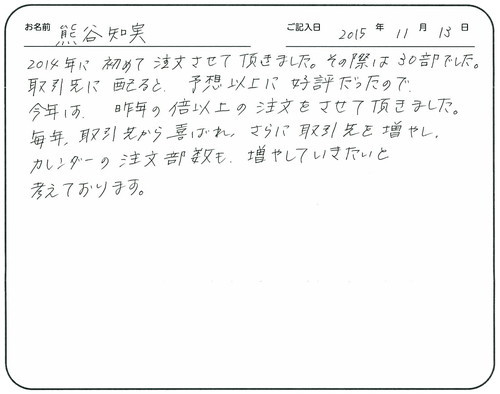 お名前 熊谷知実 ご記入日 2015 年 11 月 13 日
2014年に 初めて注文させて頂きました。その際は30部でした。
取引先に 配ると、予想以上に 好評だったので、
今年は、昨年の倍以上の注文をさせて頂きました。
毎年、取引先から喜ばれ、さらに取引先を増やし、
カレンダーの注文部数も、増やしていきたいと
考えております。